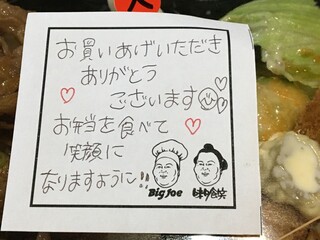 お買いあげいただき
ありがとう
ございます
お弁当を食べて
笑顔に
なりますように!!
Big Joe